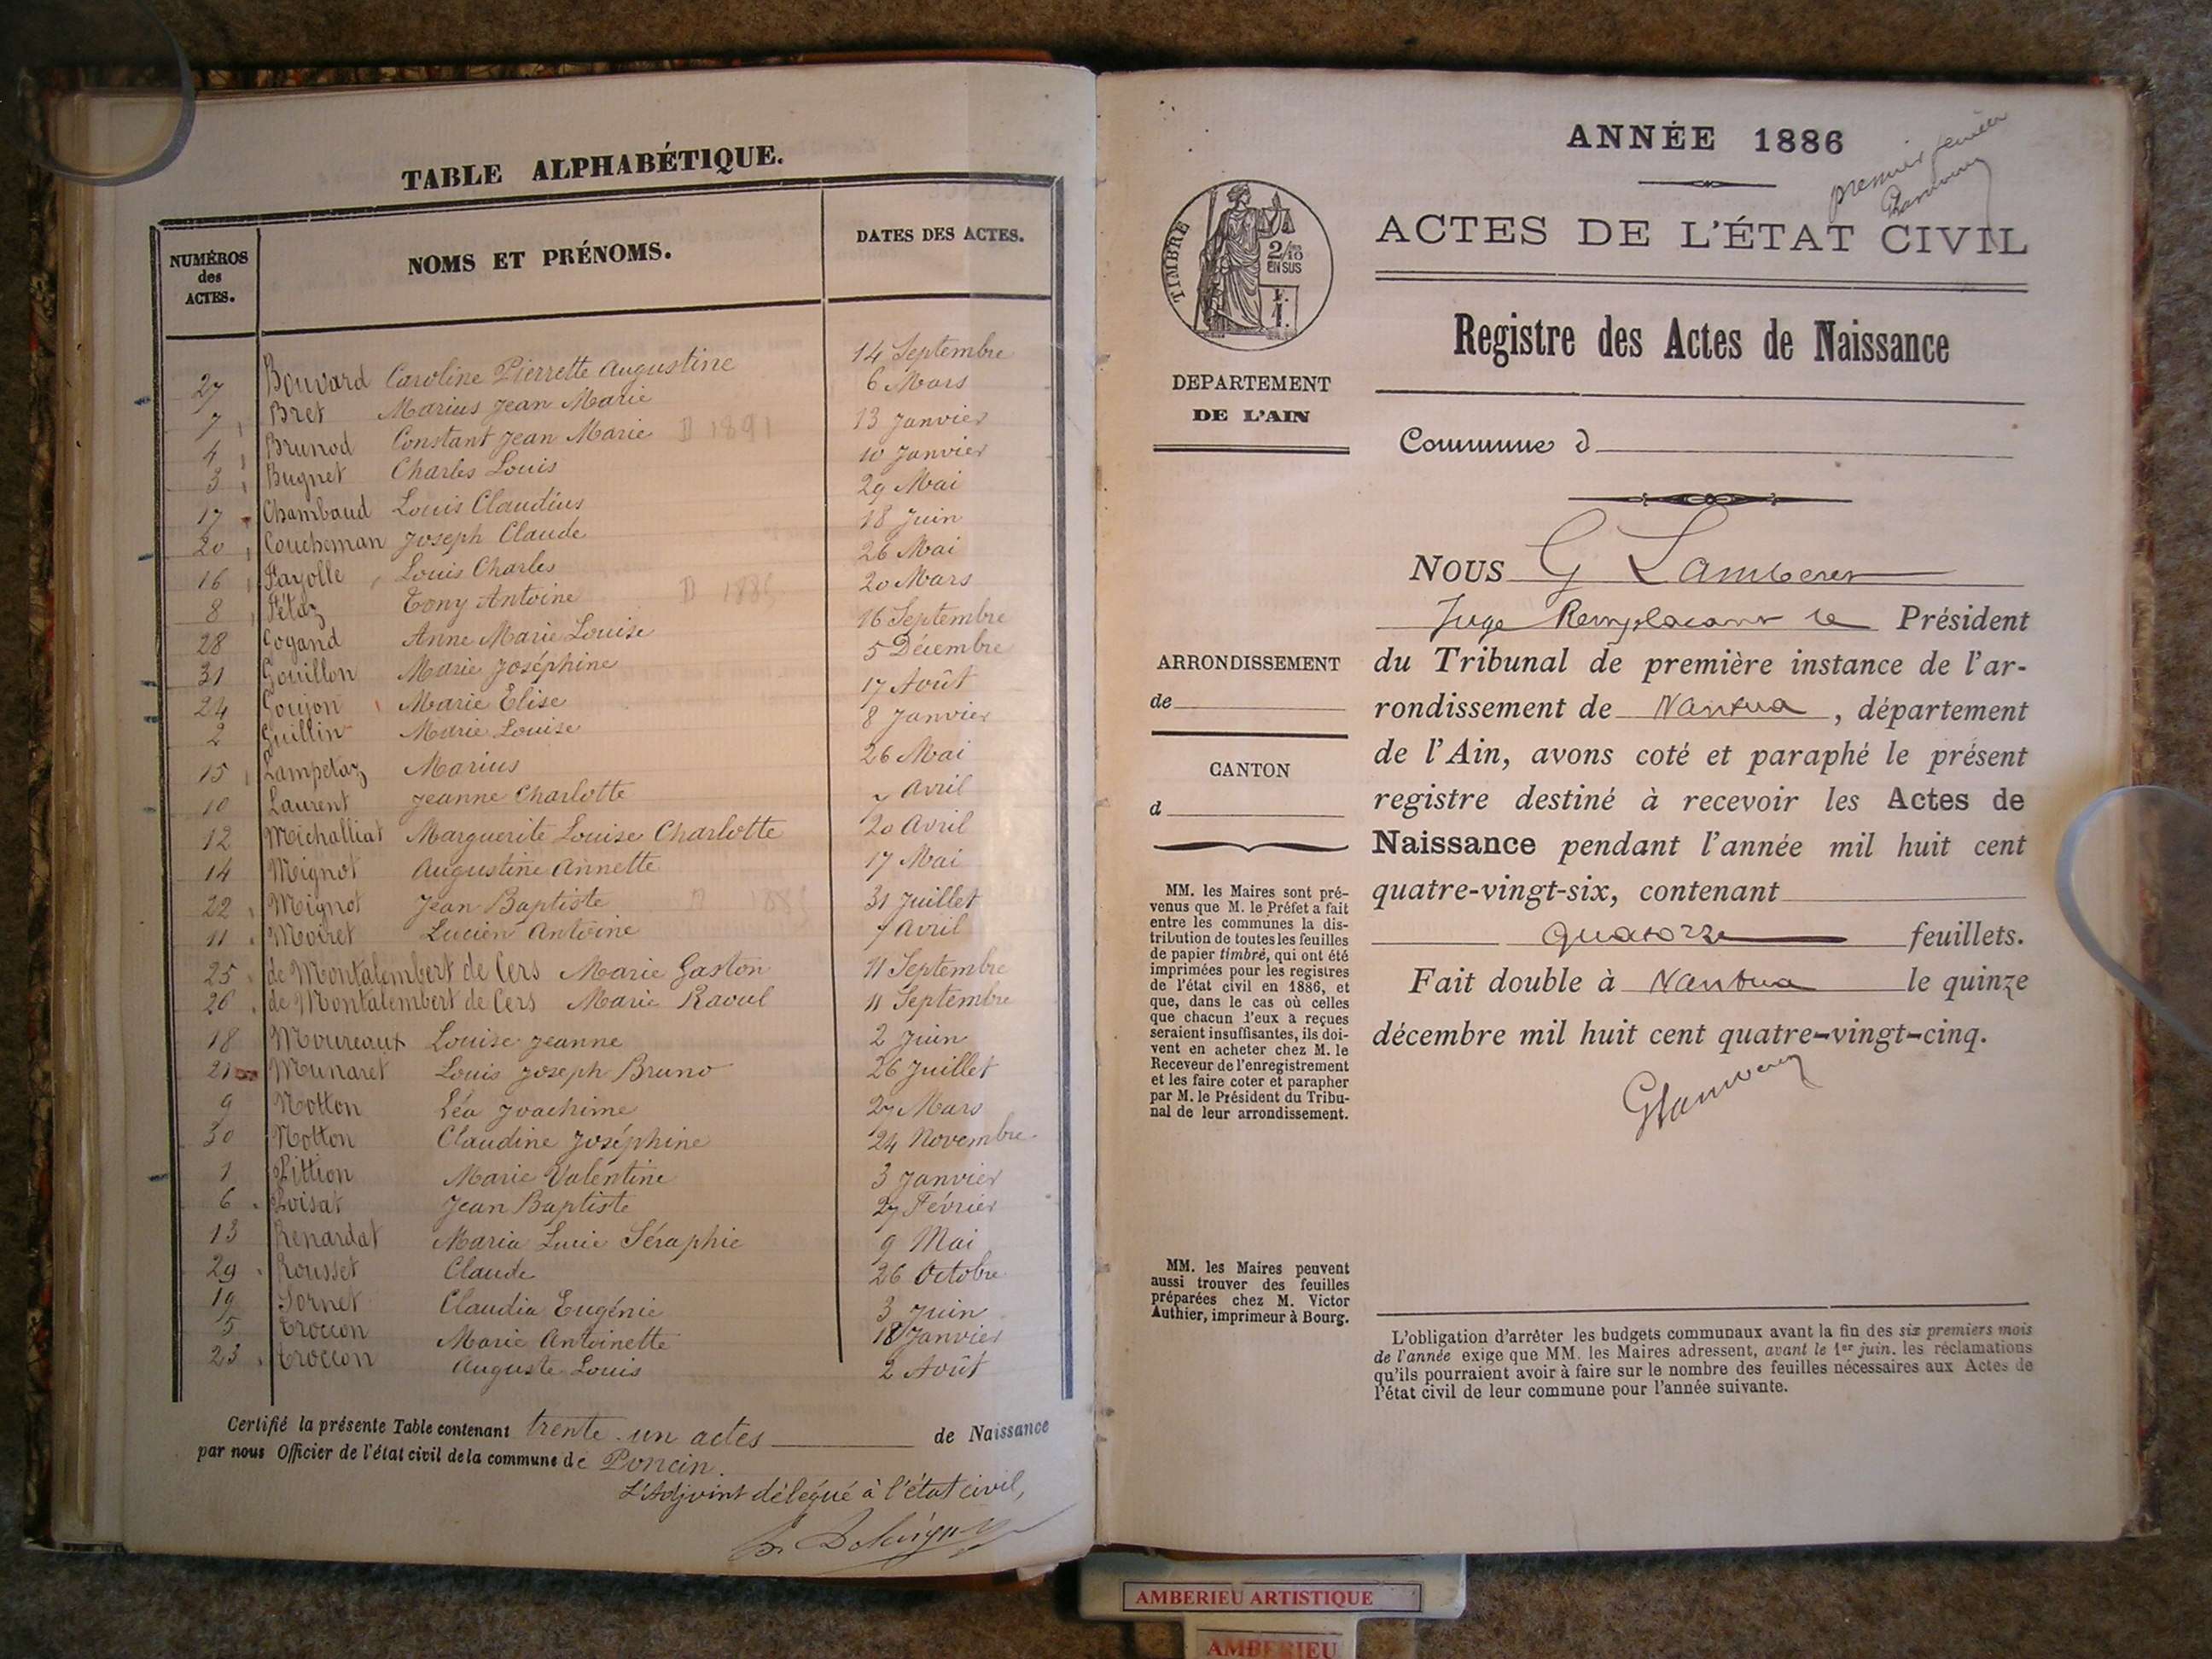 TABLE ALPHABÉTIQUE.
NUMÉROS des ACTES. NOMS ET PRÉNOMS. DATES DES ACTES.
27 Bouvard Caroline Pierrette Augustine 14 Septembre
7 Bret Marius Jean Marie 6 Mars
4 Brunod Constant Jean Marie D 1891 13 Janvier
3 Bugnet Charles Louis 10 Janvier
17 Chambaud Louis Claudius 29 Mai
20 Coucheman Joseph Claude 18 Juin
16 Fayolle Louis Charles 26 Mai
8 Fétaz Tony Antoine D 20 Mars
28 Gogand Anne Marie Louise 16 Septembre
31 Gouillon Marie Joséphine 5 Décembre
24 Goujon Marie Elise 17 Août
2 Guillin Marie Louise 8 Janvier
15 Lampetaz Marius 26 Mai
10 Laurent Jeanne Charlotte Avril
12 Michalliat Marguerite Louise Charlotte 20 Avril
14 Mignot Augustine Annette 17 Mai
22 Mignot Jean Baptiste 31 Juillet
11 Moiret Lucien Antoine 7 Avril
25 de Montalembert de Cers Marie Gaston 11 Septembre
26 de Montalembert de Cers Marie Raoul 11 Septembre
18 Moureaux Louise Jeanne 2 Juin
21 Munaret Louis Joseph Bruno 26 Juillet
9 Notton Léa Joachime 27 Mars
30 Notton Claudine Joséphine 24 Novembre
1 Pittion Marie Valentine 3 Janvier
6 Poisat Jean Baptiste 27 Février
13 Renardat Maria Lucie Séraphie 9 Mai
29 Rousset Claude 26 Octobre
19 Sornet Claudia Eugénie 3 Juin
5 Troccon Marie Antoinette 18 Janvier
23 Troccon Auguste Louis 2 Août
Certifié la présente Table contenant trente-un actes de Naissance
par nous Officier de l'état civil de la commune de Poncin.
L'Adjoint délégué à l'état civil,
ANNÉE 1886
premier feuillet
ACTES DE L'ÉTAT CIVIL
TIMBRE
2/10
EN SUS
F.
1.
Registre des Actes de Naissance
DEPARTEMENT
DE L'AIN
Commune d
NOUS G Lamberet
Juge Remplaçant le Président
ARRONDISSEMENT
de
du Tribunal de première instance de l'ar-
rondissement de Nantua, département
de l'Ain, avons coté et paraphé le présent
CANTON
d
registre destiné à recevoir les Actes de
Naissance pendant l'année mil huit cent
quatre-vingt-six, contenant
quatorze feuillets.
Fait double à Nantua le quinze
décembre mil huit cent quatre-vingt-cinq.
MM. les Maires sont pré-
venus que M. le Préfet a fait
entre les communes la dis-
tribution de toutes les feuilles
de papier timbré, qui ont été
imprimées pour les registres
de l'état civil en 1886, et
que, dans le cas où celles
que chacun d'eux a reçues
seraient insuffisantes, ils doi-
vent en acheter chez M. le
Receveur de l'enregistrement
et les faire coter et parapher
par M. le Président du Tribu-
nal de leur arrondissement.
MM. les Maires peuvent
aussi trouver des feuilles
préparées chez M. Victor
Authier, imprimeur à Bourg.
L'obligation d'arrêter les budgets communaux avant la fin des six premiers mois
de l'année exige que MM. les Maires adressent, avant le 1er juin, les réclamations
qu'ils pourraient avoir à faire sur le nombre des feuilles nécessaires aux Actes de
l'état civil de leur commune pour l'année suivante.
AMBERIEU ARTISTIQUE
AMBERIEU